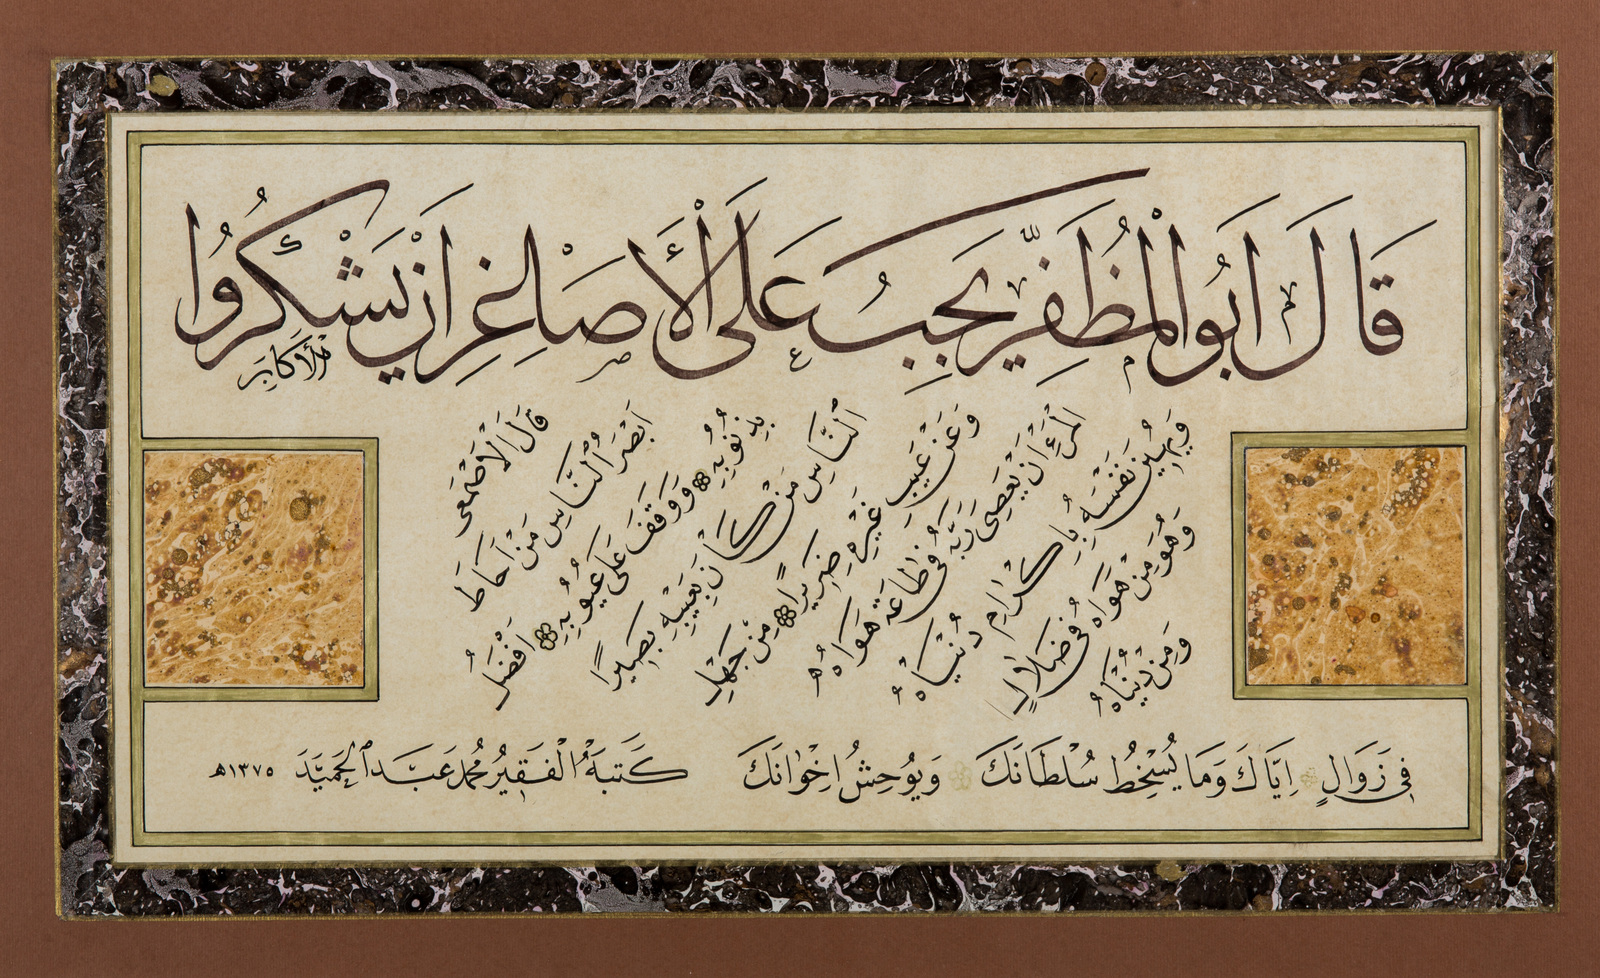 قَالَ اَبُو الْمُظَفَّرِ يَجِبُ عَلَى الْأَصَاغِرِ اَنْ يَشْكُرُوا
الْأَكَابِرَ
قَالَ الْاَصْمَعِى
اَبْصَرُ النَّاسِ مَنْ اَحَاطَ
بِذُنُوبِهِ وَوَقَفَ عَلَى عُيُوبِهِ اَفْضَلُ
النَّاسِ مَنْ كَانَ بِعَيْبِهِ بَصِيرًا
وَعَنْ عَيْبِ غَيْرِهِ ضَرِيرًا مِنْ جَهْلِ
الْمَرْءِ اَنْ يَعْصِىَ رَبَّهُ فِى طَاعَةِ هَوَاهُ
وَيُهِينَ نَفْسَهُ بِاِكْرَامِ دُنْيَاهُ
وَهُوَ مِنْ هَوَاهُ فِى ضَلَالٍ
وَمِنْ دُنْيَاهُ
فِى زَوَالٍ اِيَّاكَ وَمَا يُسْخِطُ سُلْطَانَكَ وَيُوحِشُ اِخْوَانَكَ كَتَبَهُ الْفَقِيرُ مُحَمَّد عَبْدُ الْحَمِيد ١٣٧٥هـ